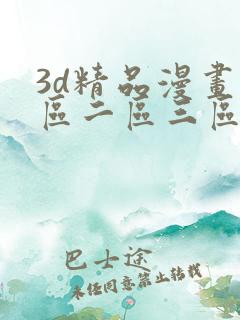 3d精品漫畫
區二區三區
巴士途
未经同意禁止转载